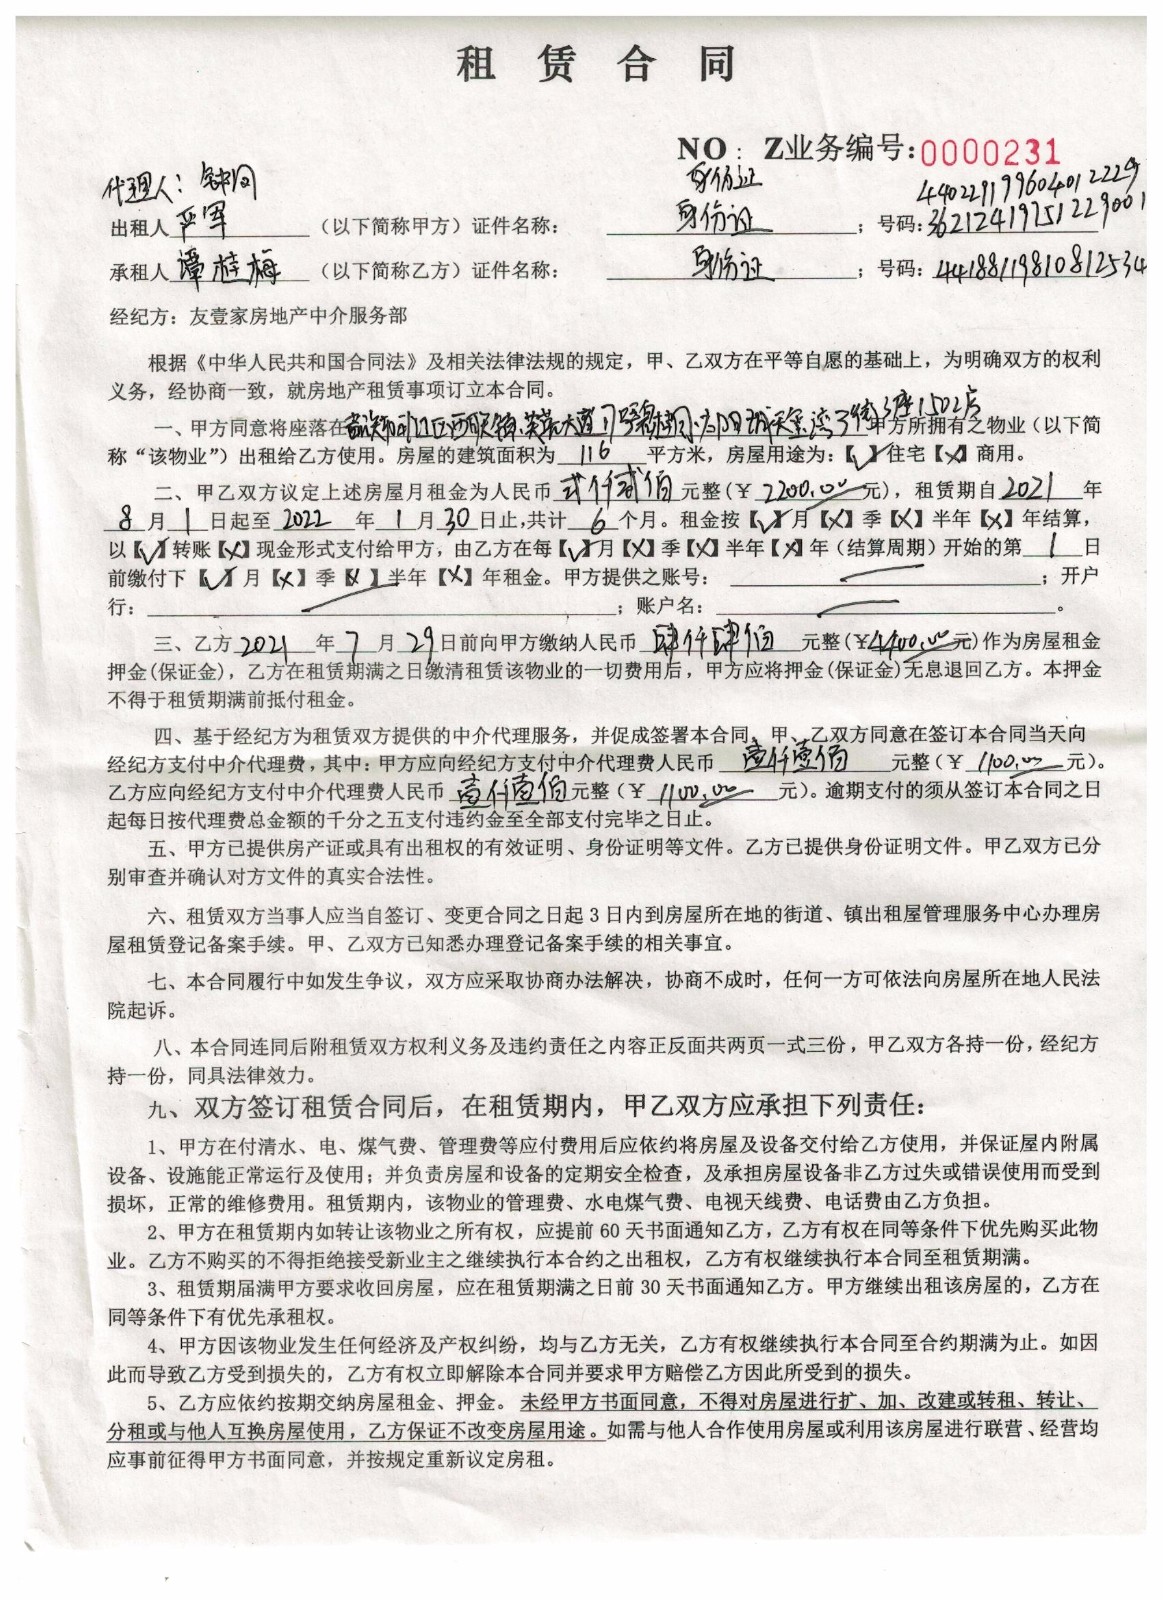 租赁合同
NO：Z业务编号：0000231
代理人： 身份证 440229199604012229
出租人 严军 （以下简称甲方）证件名称： 身份证 ；号码：36212419751229001
承租人 谭桂梅 （以下简称乙方）证件名称： 身份证 ；号码：44188119810812534
经纪方：友壹家房地产中介服务部
根据《中华人民共和国合同法》及相关法律法规的规定，甲、乙双方在平等自愿的基础上，为明确双方的权利
义务，经协商一致，就房地产租赁事项订立本合同。
一、甲方同意将座落在 武江区西联镇 3座1502房 甲方所拥有之物业（以下简
称“该物业”）出租给乙方使用。房屋的建筑面积为 116 平方米，房屋用途为：【√】住宅【×】商用。
二、甲乙双方议定上述房屋月租金为人民币 贰仟贰佰 元整（￥ 2200.00 元），租赁期自 2021 年
8 月 1 日起至 2022 年 1 月 30 日止，共计 6 个月。租金按【√】月【×】季【×】半年【×】年结算，
以【√】转账【×】现金形式支付给甲方，由乙方在每【√】月【×】季【×】半年【×】年（结算周期）开始的第 1 日
前缴付下【√】月【×】季【×】半年【×】年租金。甲方提供之账号： ；开户
行： ；账户名： 。
三、乙方 2021 年 7 月 29 日前向甲方缴纳人民币 肆仟肆佰 元整（￥4400.00元）作为房屋租金
押金（保证金），乙方在租赁期满之日缴清租赁该物业的一切费用后，甲方应将押金（保证金）无息退回乙方。本押金
不得于租赁期满前抵付租金。
四、基于经纪方为租赁双方提供的中介代理服务，并促成签署本合同，甲、乙双方同意在签订本合同当天向
经纪方支付中介代理费，其中：甲方应向经纪方支付中介代理费人民币 壹仟壹佰 元整（￥ 1100.00 元）。
乙方应向经纪方支付中介代理费人民币 壹仟壹佰 元整（￥ 1100.00 元）。逾期支付的须从签订本合同之日
起每日按代理费总金额的千分之五支付违约金至全部支付完毕之日止。
五、甲方已提供房产证或具有出租权的有效证明、身份证明等文件。乙方已提供身份证明文件。甲乙双方已分
别审查并确认对方文件的真实合法性。
六、租赁双方当事人应当自签订、变更合同之日起 3 日内到房屋所在地的街道、镇出租屋管理服务中心办理房
屋租赁登记备案手续。甲、乙双方已知悉办理登记备案手续的相关事宜。
七、本合同履行中如发生争议，双方应采取协商办法解决，协商不成时，任何一方可依法向房屋所在地人民法
院起诉。
八、本合同连同后附租赁双方权利义务及违约责任之内容正反面共两页一式三份，甲乙双方各持一份，经纪方
持一份，同具法律效力。
九、双方签订租赁合同后，在租赁期内，甲乙双方应承担下列责任：
1、甲方在付清水、电、煤气费、管理费等应付费用后应依约将房屋及设备交付给乙方使用，并保证屋内附属
设备、设施能正常运行及使用；并负责房屋和设备的定期安全检查，及承担房屋设备非乙方过失或错误使用而受到
损坏，正常的维修费用。租赁期内，该物业的管理费、水电煤气费、电视天线费、电话费由乙方负担。
2、甲方在租赁期内如转让该物业之所有权，应提前 60 天书面通知乙方，乙方有权在同等条件下优先购买此物
业。乙方不购买的不得拒绝接受新业主之继续执行本合约之出租权，乙方有权继续执行本合同至租赁期满。
3、租赁期届满甲方要求收回房屋，应在租赁期满之日前 30 天书面通知乙方。甲方继续出租该房屋的，乙方在
同等条件下有优先承租权。
4、甲方因该物业发生任何经济及产权纠纷，均与乙方无关，乙方有权继续执行本合同至合约期满为止。如因
此而导致乙方受到损失的，乙方有权立即解除本合同并要求甲方赔偿乙方因此所受到的损失。
5、乙方应依约按期交纳房屋租金、押金。未经甲方书面同意，不得对房屋进行扩、加、改建或转租、转让、
分租或与他人互换房屋使用，乙方保证不改变房屋用途。如需与他人合作使用房屋或利用该房屋进行联营、经营均
应事前征得甲方书面同意，并按规定重新议定房租。